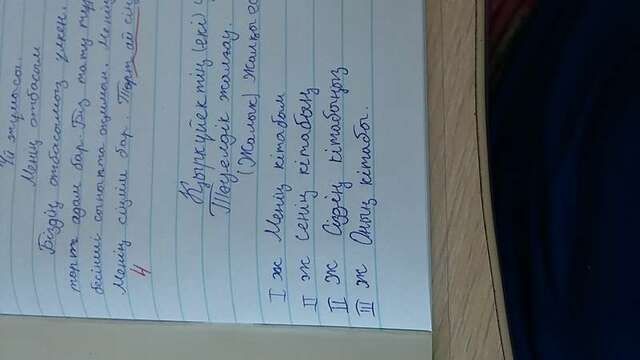 Үй жұмысы.
Менің отбасым
Біздің отбасымыз үлкен.
төрт адам бар. Біз тату
бесінші сыныпта оқимын. Менің
Менің сіңлім бар. Төрт ай
4
Қыркүйектің (екі)
Тәуелдік жалғау.
(Жалық) Жалқы
I ж Менің кітабым
II ж Сенің кітабың
II ж Сіздің кітабыңыз
III ж Оның кітабы.